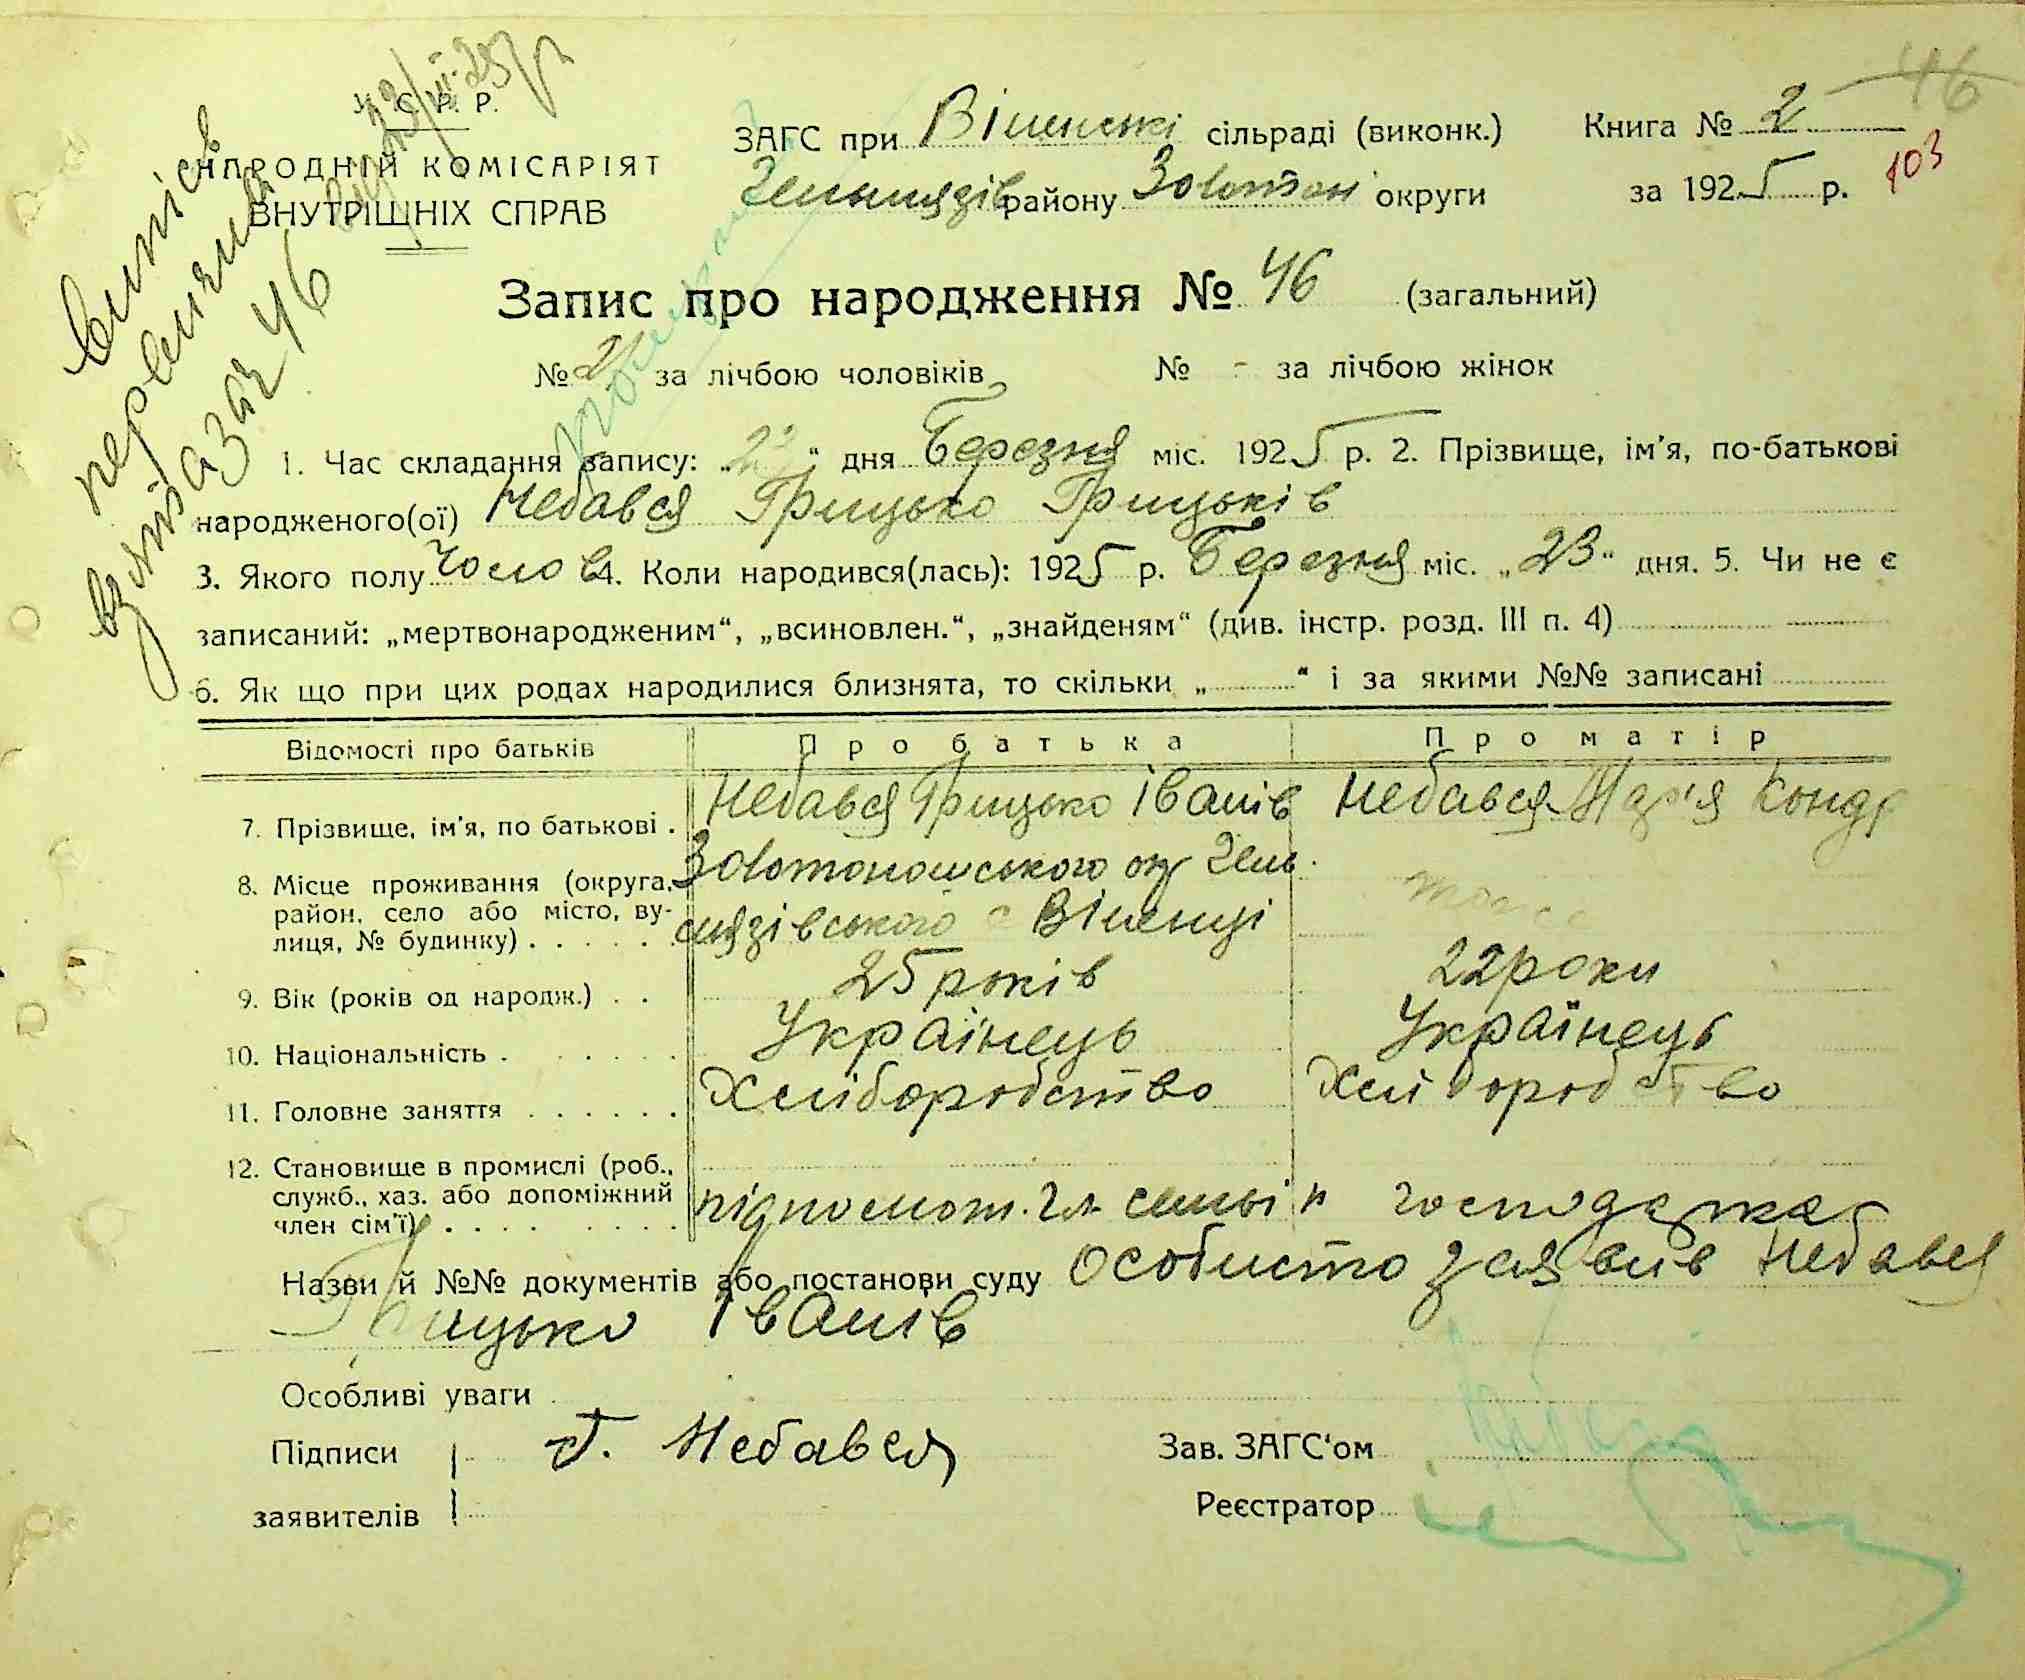 У. С. Р. Р.
НАРОДНІЙ КОМІСАРІЯТ
ВНУТРІШНІХ СПРАВ
Випись
взята за № 46
23/III-25 р
ЗАГС при Віненські сільраді (виконк.) Книга № 2
46
району Золотон округи за 1925 р.
103
Запис про народження № 46 (загальний)
№ 21 за лічбою чоловіків № - за лічбою жінок
1. Час складання запису: „23“ дня Березня міс. 1925 р. 2. Прізвище, ім'я, по-батькові
народженого(ої) Небавея Грицько Грицьків
3. Якого полу Чолов 4. Коли народився(лась): 1925 р. Березня міс. „23“ дня. 5. Чи не є
записаний: „мертвонародженим“, „всиновлен.“, „знайденям“ (див. інстр. розд. III п. 4)
6. Як що при цих родах народилися близнята, то скільки „ “ і за якими №№ записані
Відомості про батьків Про батька Про матір
7. Прізвище, ім'я, по батькові . Небавея Грицько Іванів Небавея Мар'я Кондр
8. Місце проживання (округа, район, село або місто, вулиця, № будинку) . . . . . Золотоношського окр Гель
мязівського с Віненці
9. Вік (років од народж.) . . 25 років 22 роки
10. Національність . . . . . . Українець Українець
11. Головне заняття . . . . . . Хліборобство Хліборобство
12. Становище в промислі (роб.,
служб., хаз. або допоміжний
член сім'ї) . . . . . . . . підпомог. гл. семьі " господарка
Назви й №№ документів або постанови суду Особисто заявив Небавея
Грицько Іванів
Особливі уваги
Підписи Г. Небавея Зав. ЗАГС'ом
заявителів Реєстратор